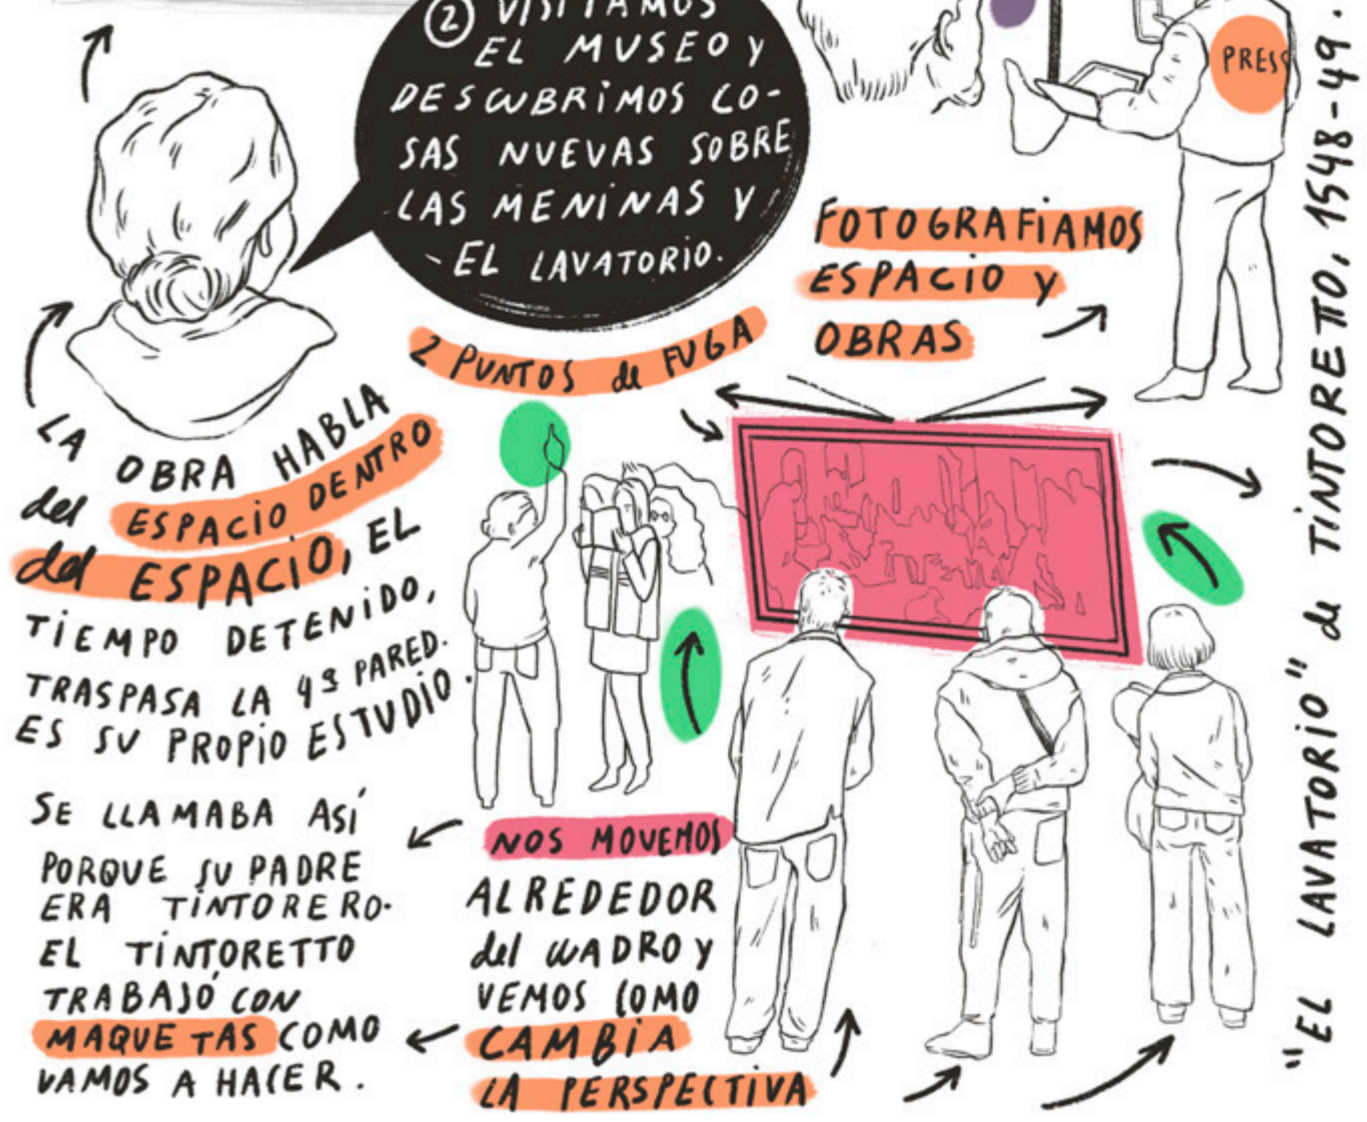 ② VISITAMOS
EL MUSEO Y
DESCUBRIMOS CO-
SAS NUEVAS SOBRE
LAS MENINAS Y
- EL LAVATORIO.
PRESS
FOTOGRAFIAMOS
ESPACIO Y
OBRAS
2 PUNTOS de FUGA
LA OBRA HABLA
del ESPACIO DENTRO
del ESPACIO, EL
TIEMPO DETENIDO,
TRASPASA LA 4ª PARED.
ES SU PROPIO ESTUDIO.
SE LLAMABA ASÍ
PORQUE SU PADRE
ERA TINTORERO.
EL TINTORETTO
TRABAJÓ CON
MAQUETAS COMO
VAMOS A HACER.
NOS MOVEMOS
ALREDEDOR
del CUADRO Y
VEMOS COMO
CAMBIA
LA PERSPECTIVA
"EL LAVATORIO" de TINTORETTO, 1548-49.